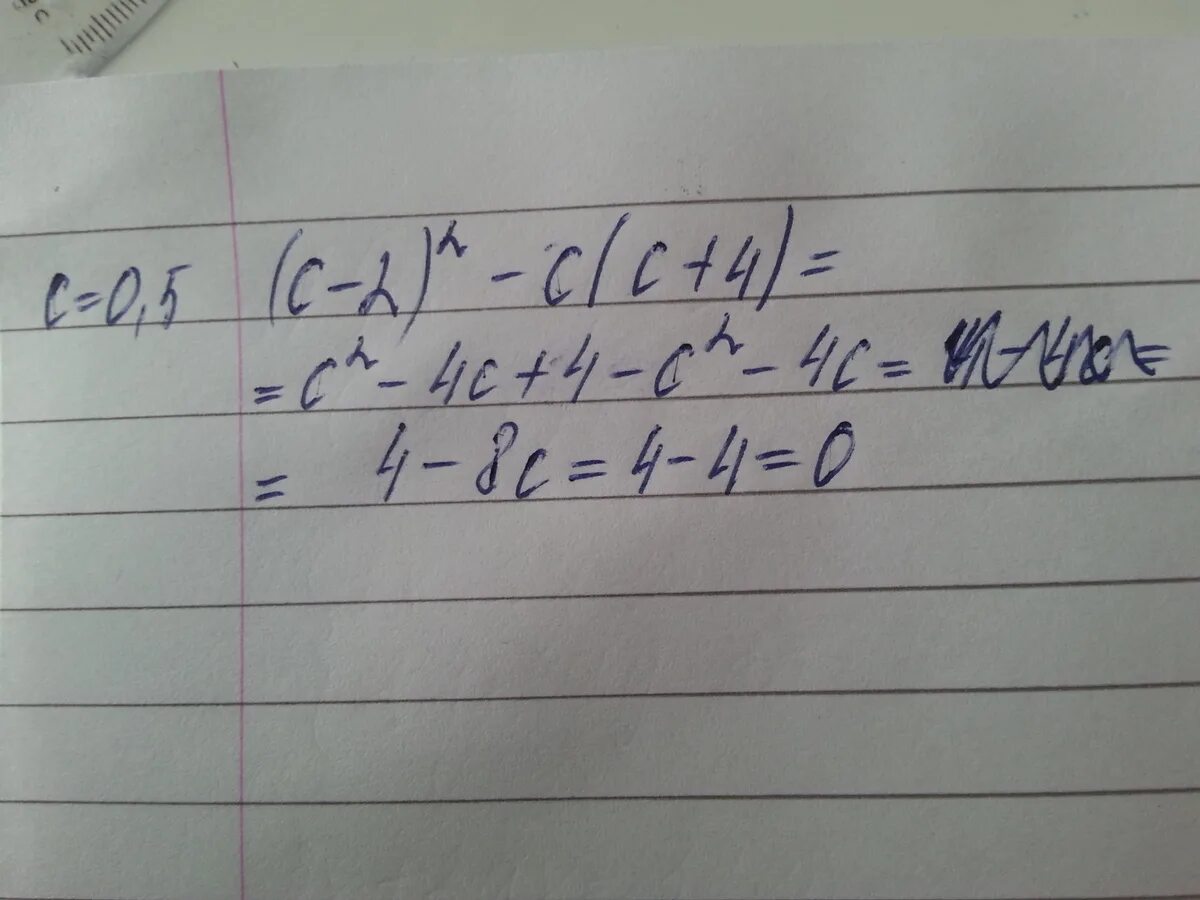 c=0,5 (c-2)² - c(c+4)=
=c²-4c+4-c²-4c=
= 4-8c=4-4=0